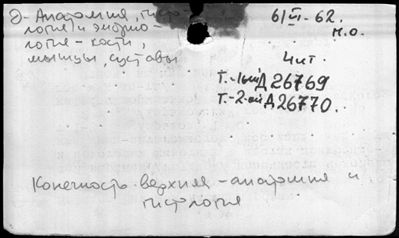 Э- Анатомия, гисто-
логия и эмбрио-
логия - кости,
мышцы, суставы
6/VI-62.
м.о.
Чит.
Т.-1ый Д26769
Т.-2-ой Д26770.
Конечность верхняя - анатомия и
гистология